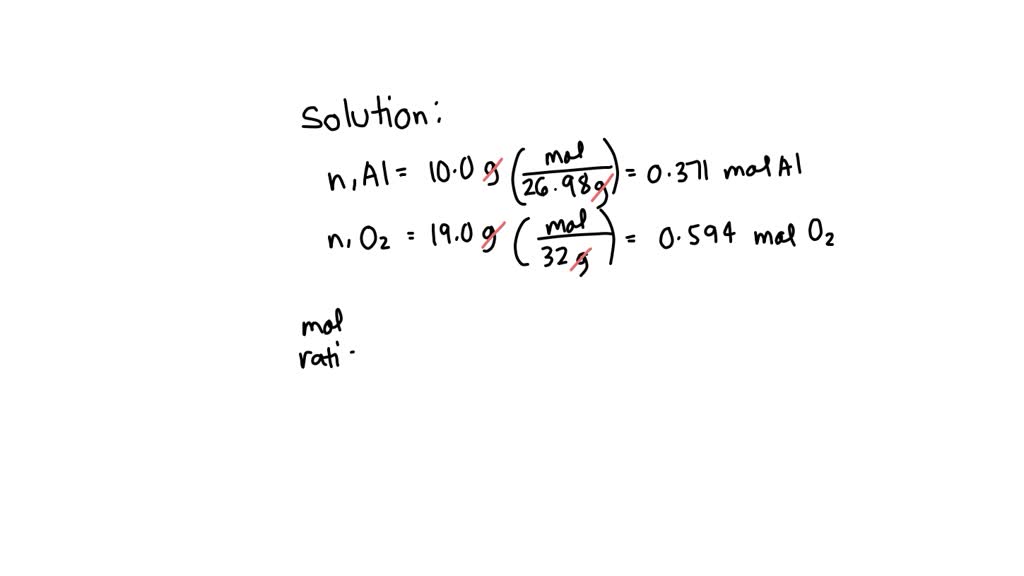 Solution:
n, Al = 10.0 g (mol / 26.98g) = 0.371 mol Al
n, O₂ = 19.0 g (mol / 32 g) = 0.594 mol O₂
mol
rati